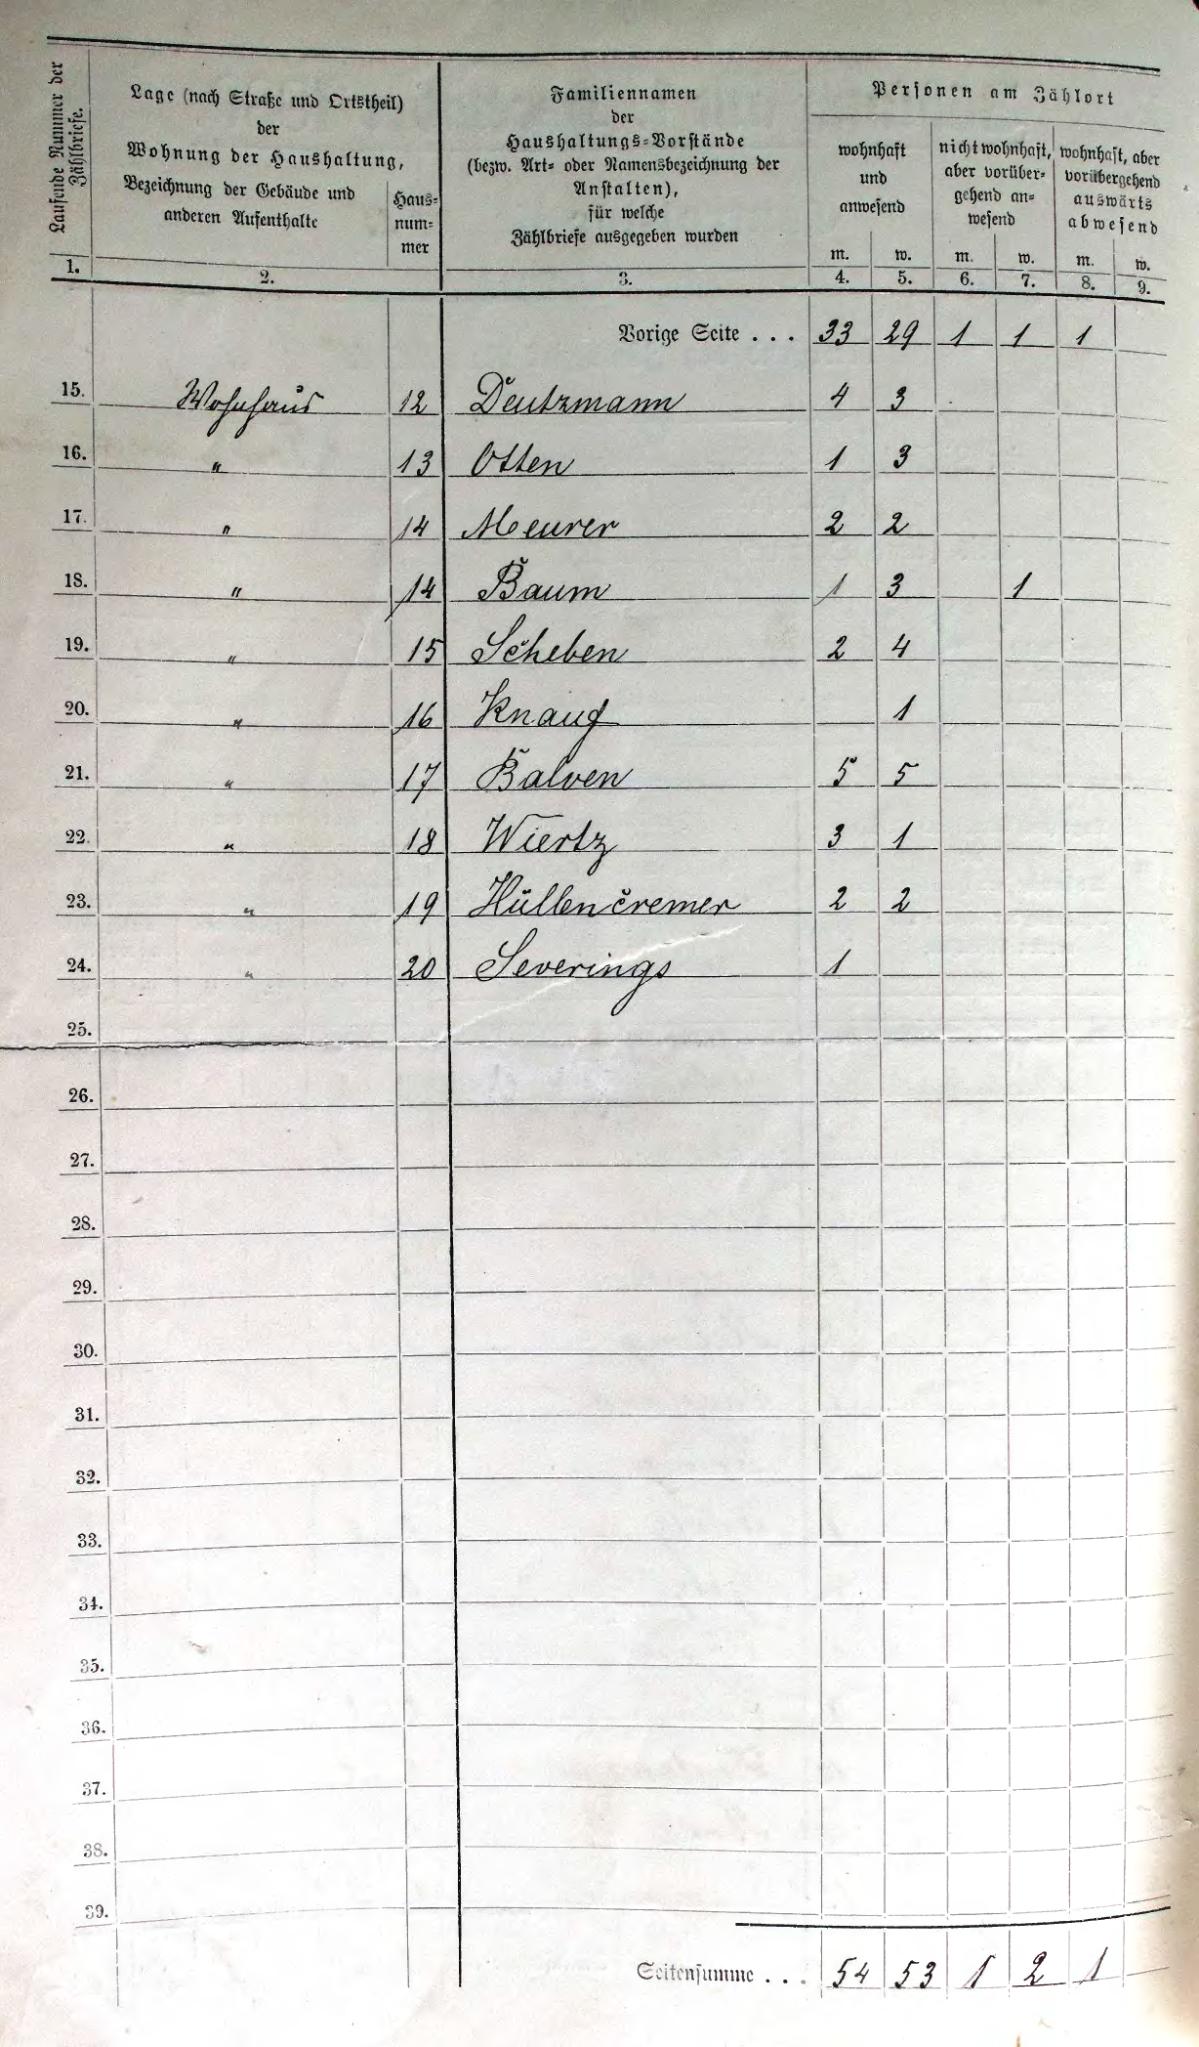 Laufende Nummer der
Zählbriefe.
Lage (nach Straße und Ortstheil)
der
Wohnung der Haushaltung,
Bezeichnung der Gebäude und
anderen Aufenthalte
Haus-
num-
mer
Familiennamen
der
Haushaltungs-Vorstände
(bezw. Art- oder Namensbezeichnung der
Anstalten),
für welche
Zählbriefe ausgegeben wurden
Personen am Zählort
wohnhaft
und
anwesend
nicht wohnhaft,
aber vorüber-
gehend an-
wesend
wohnhaft, aber
vorübergehend
auswärts
abwesend
m. w. m. w. m. w.
1. 2. 3. 4. 5. 6. 7. 8. 9.
Vorige Seite . . . 33 29 1 1 1
15. Wohnhaus 12 Deutzmann 4 3
16. " 13 Otten 1 3
17. " 14 Meurer 2 2
18. " 14 Baum 1 3 1
19. " 15 Scheben 2 4
20. " 16 Knauf 1
21. " 17 Balven 5 5
22. " 18 Wiertz 3 1
23. " 19 Hüllencremer 2 2
24. " 20 Severings 1
25.
26.
27.
28.
29.
30.
31.
32.
33.
34.
35.
36.
37.
38.
39.
Seitensumme . . . 54 53 1 2 1